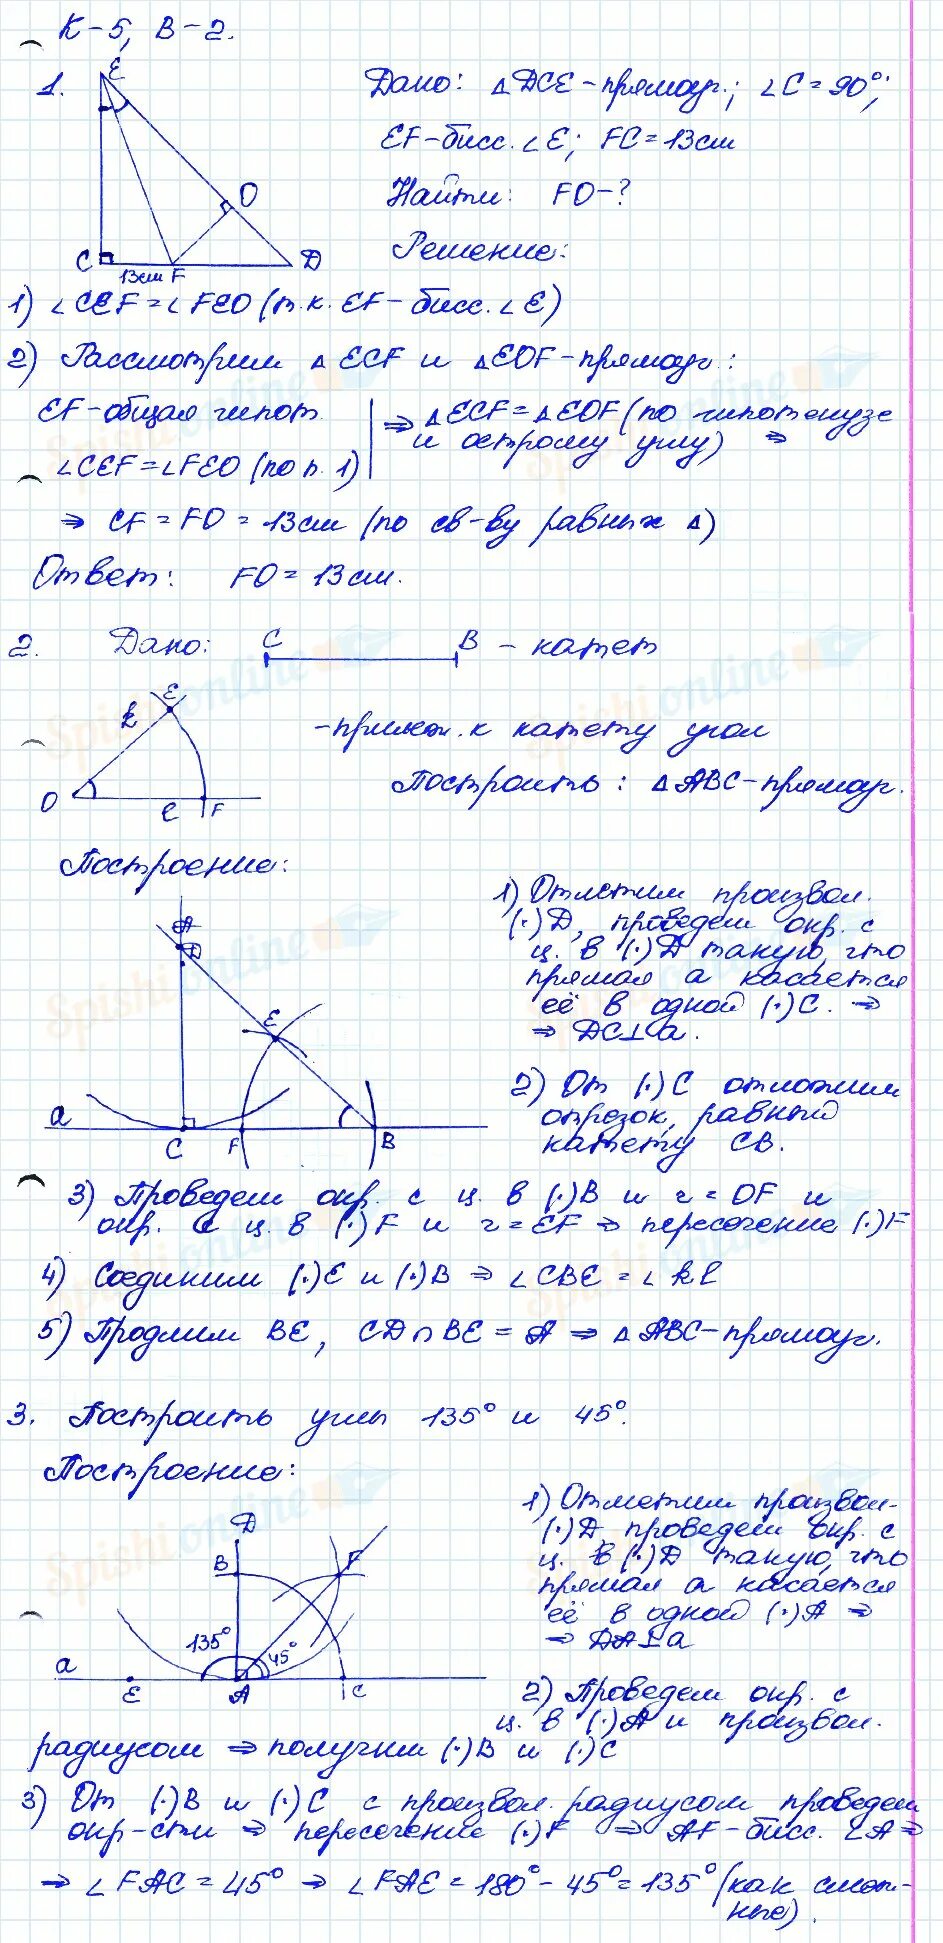 К-5, В-2.
1.
Дано: △DCE-прямоуг.; ∠C=90°;
EF-бисс.∠E; FC=13см
Найти: FO-?
Решение:
E
O
C
13см F
D
1) ∠CEF=∠FEO (т.к. EF-бисс.∠E)
2) Рассмотрим △ECF и △EOF-прямоуг:
EF-общая гипот.
⇒ △ECF=△EOF (по гипотенузе
и острому углу) ⇒
∠CEF=∠FEO (по п. 1)
⇒ CF=FO=13см (по св-ву равных △)
Ответ: FO=13см.
2. Дано: C B - катет
E
k
O
l F
-прилеж. к катету угол
Построить: △ABC-прямоуг.
Построение:
A
D
E
a
C F B
1) Отметим произвол.
(·)D, проведем окр. с
ц. в (·)D такую, что
прямая a касается
её в одной (·)C. ⇒
⇒ DC⊥a.
2) От (·)C отложим
отрезок, равный
катету CB.
3) Проведем окр. с ц. в (·)B и r=OF и
окр. с ц. в (·)F и r=EF ⇒ пересечение (·)F
4) Соединим (·)E и (·)B ⇒ ∠CBE=∠kl
5) Продлим BE, CD∩BE=A ⇒ △ABC-прямоуг.
3. Построить углы 135° и 45°.
Построение:
D
B
F
135°
45°
a
E A C
1) Отметим произвол-
(·)D, проведем окр. с
ц. в (·)D такую, что
прямая a касается
её в одной (·)A ⇒
⇒ DA⊥a
2) Проведем окр. с
ц. в (·)A и произвол.
радиусом ⇒ получим (·)B и (·)C
3) От (·)B и (·)C с произвол. радиусом проведем
окр-сти ⇒ пересечение (·)F ⇒ AF-бисс. ∠A ⇒
⇒ ∠FAC=45° ⇒ ∠FAE=180°-45°=135° (как смеж-
ные).
Spishionline